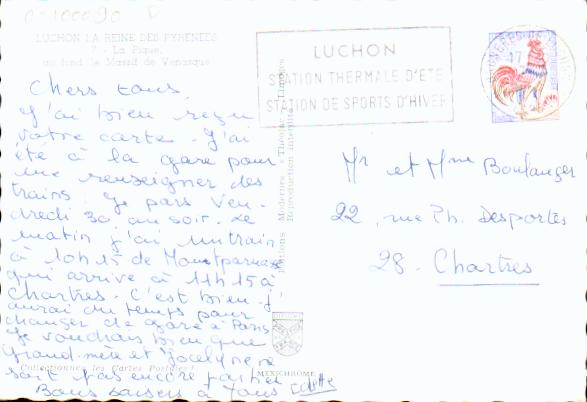 0-100090 D
LUCHON LA REINE DES PYRENEES
7 - La Pique,
au fond le Massif de Venasque
LUCHON
STATION THERMALE D'ETE
STATION DE SPORTS D'HIVER
17
Chers tous.
J'ai bien reçu
votre carte. J'ai
été à la gare pour
me renseigner des
trains. Je pars Ven-
dredi 30 au soir. Le
matin j'ai un train
à 10h15 de Montparnasse
qui arrive à 11h15 à
Chartres. C'est bien. J'
aurai du temps pour
changer de gare à Paris
Je voudrais bien que
Grand-mère et Jocelyne ne
soit pas encore parties
Bons baisers à Tous
Odette
Collectionnez les Cartes Postales !
MEXICHROME
Editions Modernes Théojac
Reproduction interdite
Mr et Mme Boulanger
22, rue Ph. Desportes
28. Chartres